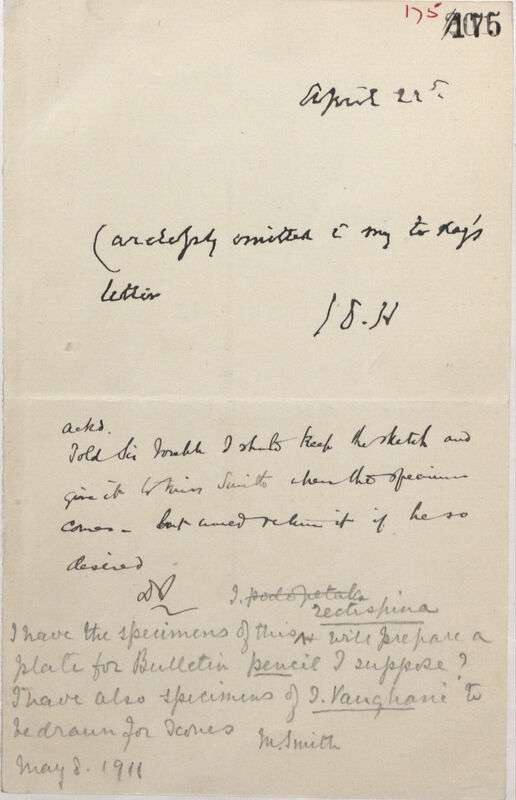 175 175
April 22
(carelessly omitted in my to day's
letter
J D. H
ackd.
Told Sir Joseph I should keep the sketch and
give it to Miss Smith when the specimen
comes – but would return it if he so
desired
I. podopetala
rectispina
I have the specimens of this & will prepare a
plate for Bulletin pencil I suppose?
I have also specimens of I. Vaughanii to
be drawn for Icones
M. Smith
May 8. 1911